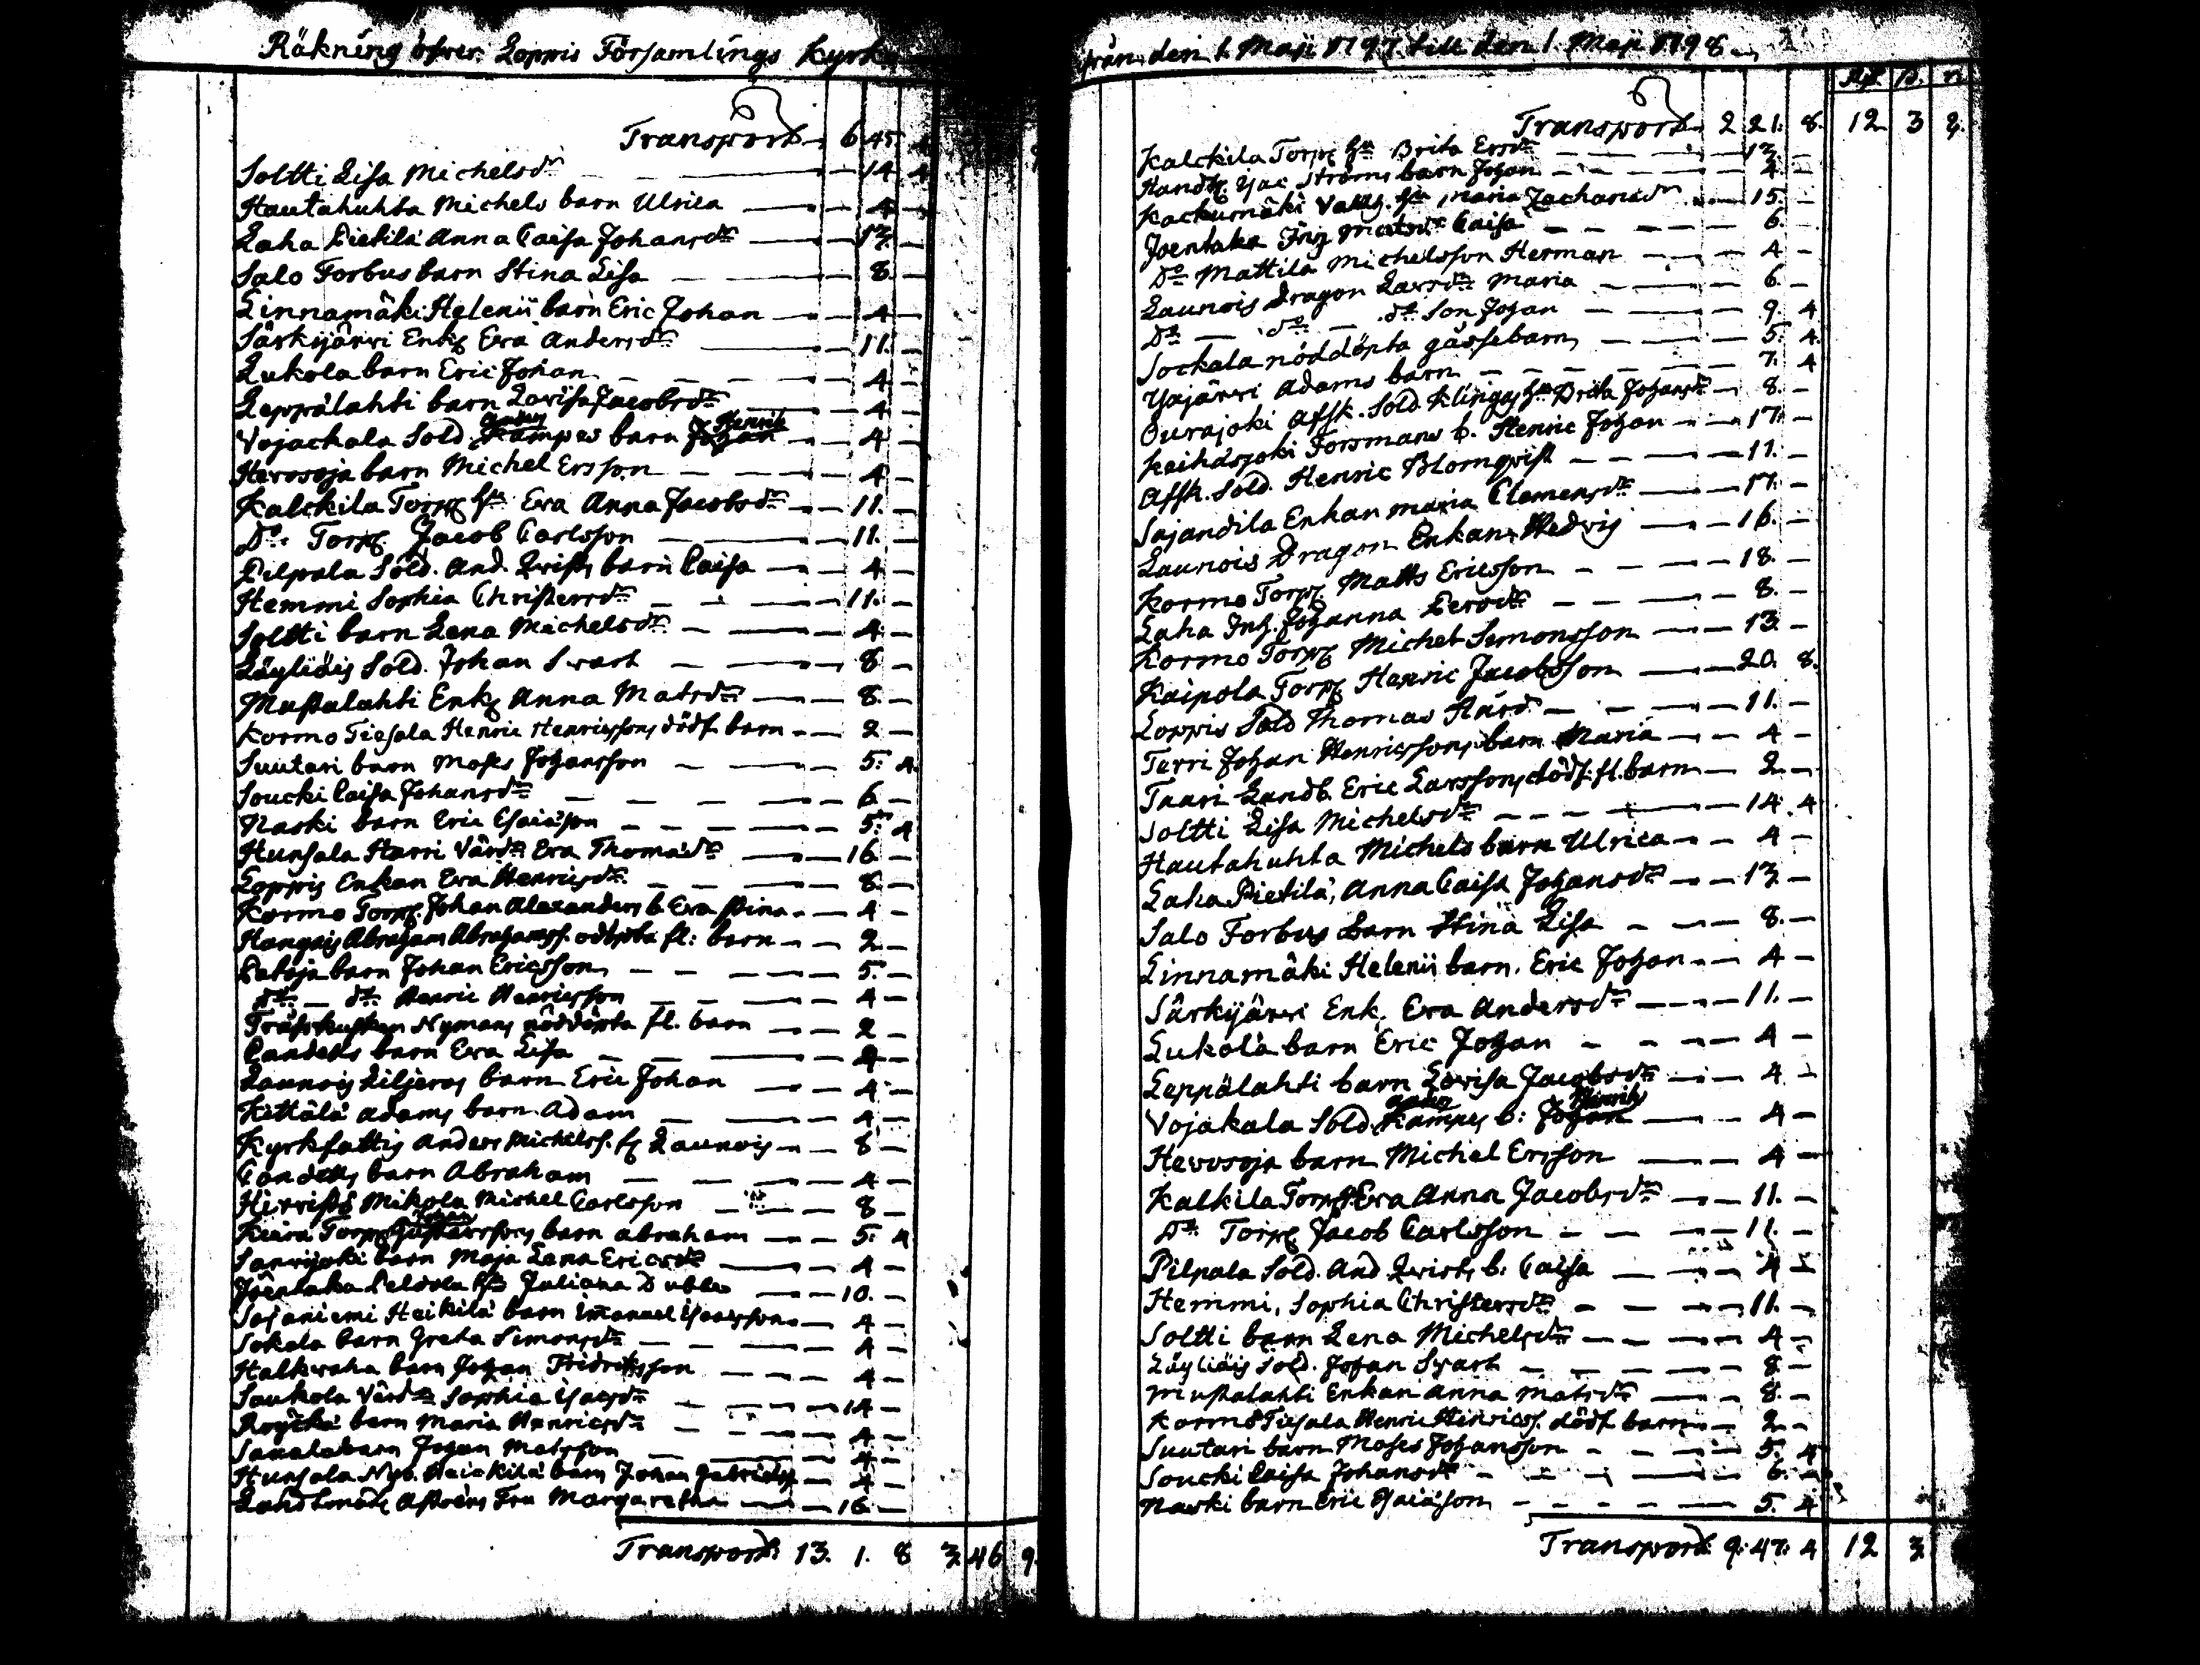 Räkning öfver Loppis Församlings Kyrk
Transport 6 45 4
Soltti Lisa Michelsdr 14 4
Hautahuhta Michels barn Ulrica 4
Laha Pietilä Anna Caisa Johansdr 13
Salo Forbus barn Stina Lisa 8
Linnamäki Helenii barn Eric Johan 4
Särkijärvi Enkz Eva Andersdr 11
Lukola barn Eric Johan 4
Leppälahti barn Lovisa Jacobsdr 4
Vojackala Sold Kampes barn Henric 4
Hervoja barn Michel Ersson 4
Kalckila Torpz Hu Eva Anna Jacobsdr 11
Do Torpz Jacob Carlsson 11
Pilpala Sold. And. Qvists barn Caisa 4
Hemmi Sophia Christersdr 11
Soltti barn Lena Michelsdr 4
Läyliäis Sold. Johan Svart 8
Mustalahti Enkz Anna Matsdr 8
Kormo Tiesala Henric Henricssons dödf. barn 2
Suutari barn Moses Johansson 5 4
Soucki Caisa Johansdr 6
Naski barn Eric Esaiason 5 4
Hunsala Harri Värdn Eva Thomædr 16
Loppis Enkan Eva Henricsdr 8
Kormo Torpz Johan Alexanders b. Eva Stina 4
Hangais Abraham Abrahamss. odöpta fl: barn 2
Patoja barn Johan Ericsson 5
do do Henric Henricsson 4
Nymans nöddöpta fl. barn 2
barn Eva Lisa 4
Launois Liljeros barn Eric Johan 4
Kittälä Adams barn Adam 4
Kyrkfattig Anders Michelss. fr Launois 8
barn Abraham 4
Hirvistö Mikola Michel Carlsson 8
Torpz Gustavssons barn Abraham 5 4
Sarvijoki barn Maja Lena Ericsdr 4
Joentaka Peldola Juliana Dubbe 10
Sajaniemi Heikilä barn Emanuel Isacsson 4
Sokala barn Greta Simonsdr 4
barn Johan Fridricsson 4
Saukola Värdn Sophia Isacsdr 14
barn Maria Henricsdr 4
barn Johan Matsson 4
Hunsala Nyb. Heickilä barn Johan 4
Fru Margaretha 16
Transport 13. 1. 8 3 46 9
från den 1. Maji 1797 till den 1. Maji 1798
Rdr s. r
Transport 2 21. 8. 12 3 9
Kalckila Torpz Hu Brita Ersdr 13
Isac Ströms barn Johan 4
Kackumäki Hu Maria Zachariædr 15
Joentaka Inz Matsdr Caisa 6
Do Mattila Michelsson Herman 4
Launois Dragon Larsdr Maria 6
Do do do Son Johan 9 4
Sockala nöddöpta gåssebarn 5 4
Yajärvi Adams barn 7 4
Ourajoki Affsk. Sold Klingas Hu Brita Johansdr 8
Kaihasjoki Forsmans b. Henric Johan 17
Affsk. Sold. Henric Blomqvist 11
Sajandila Enkan Maria Clemensdr 17
Launois Dragon Enkan Hedvig 16
Kormo Torpz Matts Ericsson 18
Laha Inh. Johanna Persdr 8
Kormo Torpz Michel Simonsson 13
Kaipola Torpz Henric Jacobsson 20 8
Loppis Sold Thomas Hård 11
Terri Johan Henricssons barn Maria 4
Taari Landb. Eric Larssons dödf. fl. barn 2
Soltti Lisa Michelsdr 14 4
Hautahuhta Michels barn Ulrica 4
Laha Pietilä, Anna Caisa Johansdr 13
Salo Forbus barn Stina Lisa 8
Linnamäki Helenii barn Eric Johan 4
Särkijärvi Enk. Eva Andersdr 11
Lukola barn Eric Johan 4
Leppälahti barn Lovisa Jacobsdr 4
Vojakala Sold. Kampes b: Henric 4
Hervoja barn Michel Ersson 4
Kalkila Torpz Eva Anna Jacobsdr 11
Do Torpz Jacob Carlsson 11
Pilpala Sold. And Qvists b. Caisa 4
Hemmi, Sophia Christersdr 11
Soltti barn Lena Michelsdr 4
Läyliäis Sold. Johan Svart 8
Mustalahti Enkan Anna Matsdr 8
Kormo Tiesala Henric Henricss. dödf. barn 2
Suutari barn Moses Johansson 5 4
Soucki Caisa Johansdr 6
Naski barn Eric Esaiason 5 4
Transport 9. 47. 4 12 3